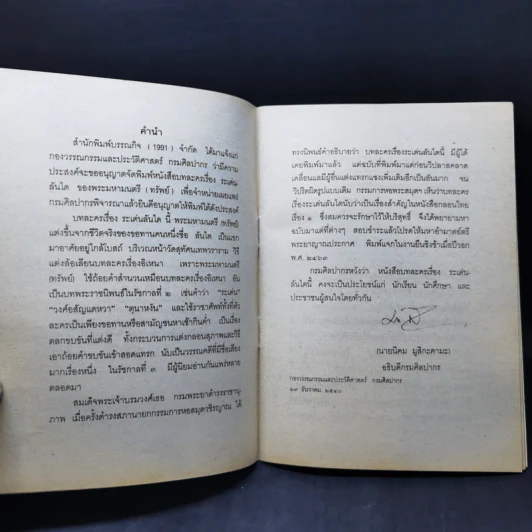 คำนำ
สำนักพิมพ์บรรณกิจ (1991) จำกัด ได้มาแจ้งแก่
กองวรรณกรรมและประวัติศาสตร์ กรมศิลปากร ว่ามีความ
ประสงค์จะขออนุญาตจัดพิมพ์หนังสือบทละครเรื่อง ระเด่น
ลันได ของพระมหามนตรี (ทรัพย์) เพื่อจำหน่ายเผยแพร่
กรมศิลปากรพิจารณาแล้วยินดีอนุญาตให้พิมพ์ได้ดังประสงค์
บทละครเรื่อง ระเด่นลันได นี้ พระมหามนตรี (ทรัพย์)
แต่งขึ้นจากชีวิตจริงของขอทานคนหนึ่งชื่อ ลันได เป็นแขก
มาอาศัยอยู่ใกล้โบสถ์ บริเวณหน้าวัดสุทัศนเทพวราราม วิธี
แต่งล้อเลียนบทละครเรื่องอิเหนา เพราะพระมหามนตรี
(ทรัพย์) ใช้ถ้อยคำสำนวนเหมือนบทละครเรื่องอิเหนา อัน
เป็นบทพระราชนิพนธ์ในรัชกาลที่ ๒ เช่นคำว่า "ระเด่น"
"วงศ์อสัญแดหวา" "ตุนาหงัน" และใช้ราชาศัพท์ทั้งที่ตัว
ละครเป็นเพียงขอทานหรือสามัญชนหาเช้ากินค่ำ เป็นเรื่อง
ตลกขบขันที่แต่งดี ทั้งกระบวนการแต่งกลอนสุภาพและวิธี
เอาถ้อยคำขบขันเข้าสอดแทรก นับเป็นวรรณคดีที่มีชื่อเสียง
มากเรื่องหนึ่ง ในรัชกาลที่ ๓ มีผู้นิยมอ่านกันแพร่หลาย
ตลอดมา
สมเด็จพระเจ้าบรมวงศ์เธอ กรมพระยาดำรงราชานุ
ภาพ เมื่อครั้งดำรงสภานายกกรรมการหอสมุดวชิรญาณ ได้
ทรงนิพนธ์คำอธิบายว่า บทละครเรื่องระเด่นลันไดนี้ มีผู้ได้
เคยพิมพ์มาแล้ว แต่ฉบับที่พิมพ์มาแต่ก่อนวิปลาสคลาด
เคลื่อนแลมีผู้อื่นแต่งแทรกแซงเพิ่มเติมอีกเป็นอันมาก จน
วิปริตผิดรูปฉบับเดิม กรรมการหอพระสมุดฯ เห็นว่าบทละคร
เรื่องระเด่นลันไดนับว่าเป็นเรื่องสำคัญในหนังสือกลอนไทย
เรื่อง ๑ ซึ่งสมควรจะรักษาไว้ให้บริสุทธิ์ จึงได้พยายามหา
ฉบับมาแต่ที่ต่างๆ สอบชำระแล้วโปรดให้มหาอำมาตย์ตรี
พระยาญาณประกาศ พิมพ์แจกในงานยืนชิงช้าเมื่อปีวอก
พ.ศ. ๒๔๖๓
กรมศิลปากรหวังว่า หนังสือบทละครเรื่อง ระเด่น
ลันไดนี้ คงจะเป็นประโยชน์แก่ นักเรียน นักศึกษา และ
ประชาชนผู้สนใจโดยทั่วกัน
(นายนิคม มูสิกะคามะ)
อธิบดีกรมศิลปากร
กองวรรณกรรมและประวัติศาสตร์ กรมศิลปากร
ธันวาคม ๒๕๔๐